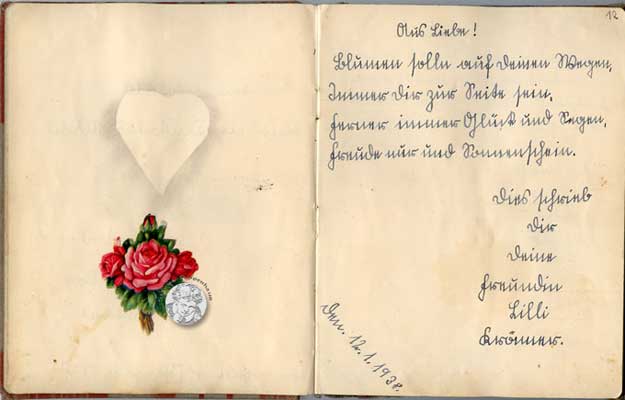 12
Aus Liebe!
Blumen solln auf deinen Wegen,
Immer dir zur Seite sein,
Ferner immer Glück und Segen,
Freude nur und Sonnenschein.
Dies schrieb
Dir
Deine
Freundin
Lilli
Krämer.
Den. 12.1.1938.